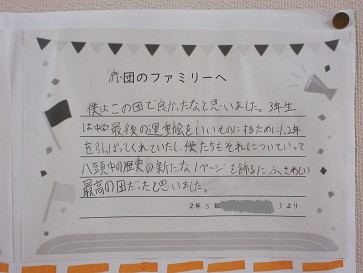 赤団のファミリーへ
僕はこの団で良かったなと思いました。3年生
は中学最後の運動会をいいものにするために1、2年
を引っぱってくれていたし、僕たちもそれについていって
八頭中の歴史の新たな1ページを飾るにふさわしい
最高の団だったと思いました。
2年 5 組 より